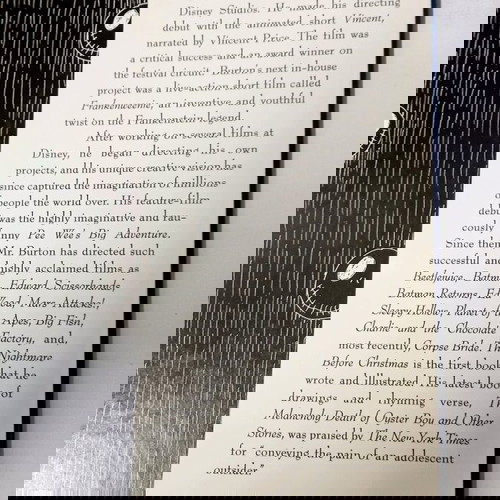 Disney Studios. He made his directing
debut with the animated short Vincent,
narrated by Vincent Price. The film was
a critical success and an award winner on
the festival circuit. Burton's next in-house
project was a live-action short film called
Frankenweenie, an inventive and youthful
twist on the Frankenstein legend.
After working on several films at
Disney, he began directing his own
projects, and his unique creative vision has
since captured the imagination of millions
of people the world over. His feature-film
debut was the highly imaginative and rau-
cously funny Pee Wee's Big Adventure.
Since then Mr. Burton has directed such
successful and highly acclaimed films as
Beetlejuice, Batman, Edward Scissorhands,
Batman Returns, Ed Wood, Mars Attacks!,
Sleepy Hollow, Planet of the Apes, Big Fish,
Charlie and the Chocolate Factory, and,
most recently, Corpse Bride. The Nightmare
Before Christmas is the first book that he
wrote and illustrated. His latest book of
drawings and rhyming verse, The
Melancholy Death of Oyster Boy and Other
Stories, was praised by The New York Times
for "conveying the pain of an adolescent
outsider."